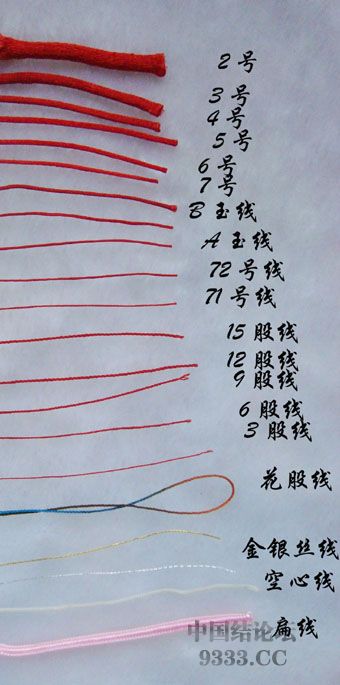 2号
3号
4号
5号
6号
7号
B玉线
A玉线
72号线
71号线
15股线
12股线
9股线
6股线
3股线
花股线
金银丝线
空心线
扁线
中国结论坛
9333.CC